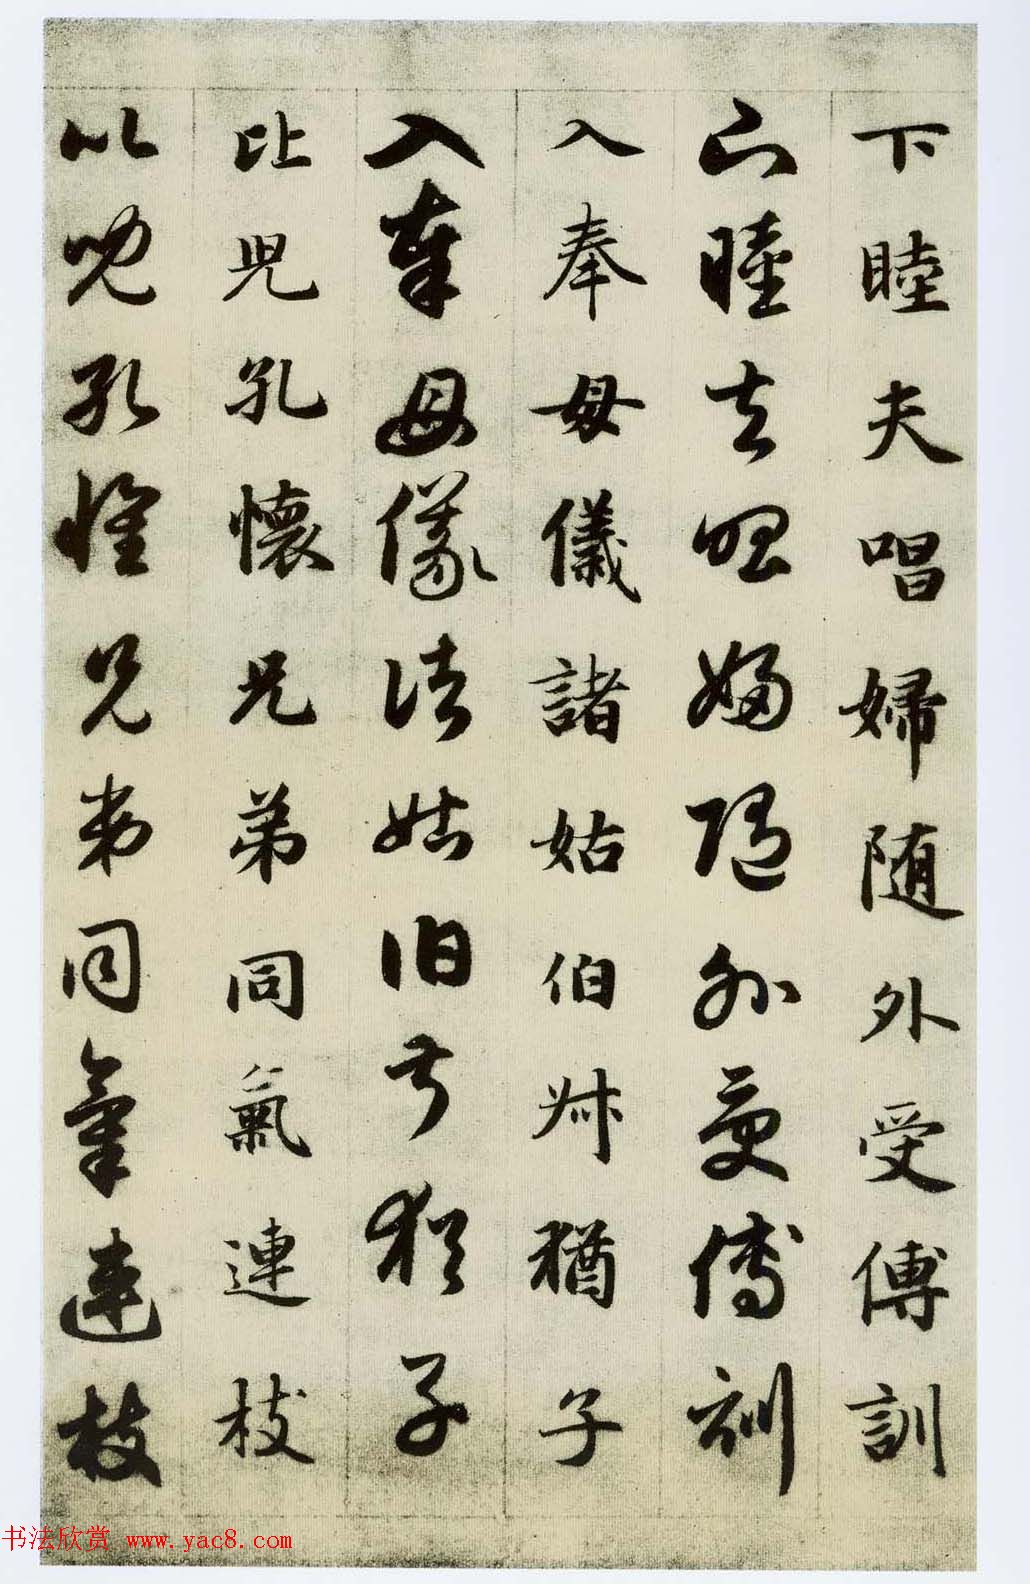 下睦夫唱婦随外受傅訓
下睦夫唱婦随外受傅訓
入奉母儀諸姑伯叔猶子
入奉母儀諸姑伯叔猶子
比兒孔懷兄弟同氣連枝
比兒孔懷兄弟同氣連枝
书法欣赏 www.yac8.com